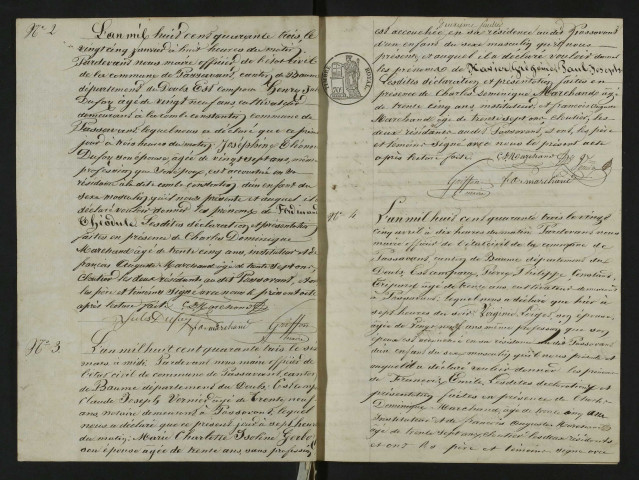 N° 2 L'an mil huit cent quarante trois, le
vingt cinq janvier à huit heures du matin
Pardevant nous maire officier de l'état civil
de la commune de Passavant, canton de Baume
département du Doubs, Est comparu Henry Jules
Dufay âgé de vingt neuf ans, cultivateur
demeurant à la combe constantin commune de
Passavant lequel nous a déclaré que ce
jour à trois heures du matin Joséphine
Dufay son épouse, âgée de vingt sept ans,
profession, est accouchée en sa
résidence audit combe constantin d'un enfant du
sexe masculin qu'il nous présente, et auquel il a
déclaré vouloir donner les prénoms de
Théodule. Lesdites déclaration et présentation
faites en présence de Charles Dominique
Marchand âgé de trente cinq ans, instituteur, et de
françois Auguste Marchand âgé de trente sept ans
cloutier les deux résidants audit Passavant, et ont
les père et témoins signé avec nous le présent acte
après lecture faite. C. D. Marchand
Jules Dufay f. a. marchand Goffin
maire
N° 3 L'an mil huit cent quarante trois, le six
mars à midi Pardevant nous maire officier de
l'état civil de commune de Passavant, canton
de Baume département du Doubs, Est comparu
Claude Joseph Vernier âgé de trente neuf
ans, notaire demeurant à Passavant, lequel
nous a déclaré que ce présent jour à sept heures
du matin Marie Charlotte Isoline
son épouse âgée de trente ans, sans profession
Deuxième feuillet
est accouchée, en sa résidence audit Passavant
d'un enfant du sexe masculin qu'il nous
présente, et auquel il a déclaré vouloir donner
les prénoms de Marie Paul Joseph
Lesdites déclaration et présentation faites en
présence de Charles Dominique Marchand âgé
de trente cinq ans, instituteur, et françois Auguste
Marchand âgé de trente sept ans cloutier, les
deux résidants audit Passavant, et ont, les père
et témoins signé avec nous le présent acte
après lecture faite. C. D. Marchand
Goffin f. a. marchand
maire
N° 4 L'an mil huit cent quarante trois le vingt
cinq avril à dix heures du matin Pardevant nous
maire officier de l'état civil de la commune de
Passavant, canton de Baume département du
Doubs, Est comparu Philippe
âgé de trente ans, cultivateur demeurant
à Passavant, lequel nous a déclaré que hier à
sept heures du soir Virginie son épouse,
âgée de vingt neuf ans même profession que son
époux est accouchée en sa résidence audit Passavant
d'un enfant du sexe masculin qu'il nous présente et
auquel il a déclaré vouloir donner les prénoms
de François Emile, Lesdites déclaration et
présentation faites en présence de Charles
Dominique Marchand, âgé de trente cinq ans
instituteur et de françois Auguste Marchand
âgé de trente sept ans, cloutier les deux résidants
et ont les père et témoins signé avec